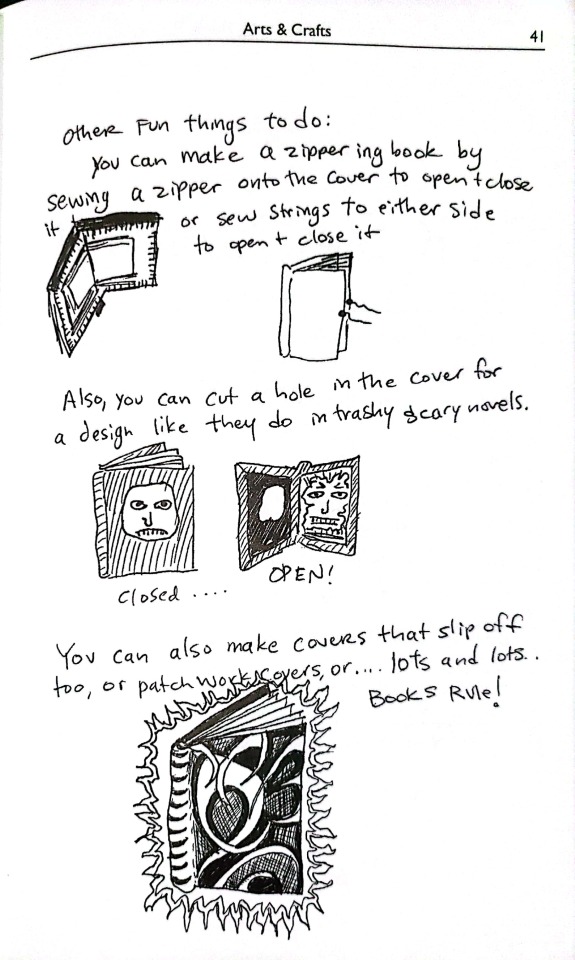 Arts & Crafts
41
Other Fun things to do:
You can make a zippering book by
sewing a zipper onto the cover to open + close
it or sew strings to either side
to open + close it
Also, you can cut a hole in the cover for
a design like they do in trashy scary novels.
Closed ....
OPEN!
You can also make covers that slip off
too, or patchwork covers, or.... lots and lots..
Books Rule!